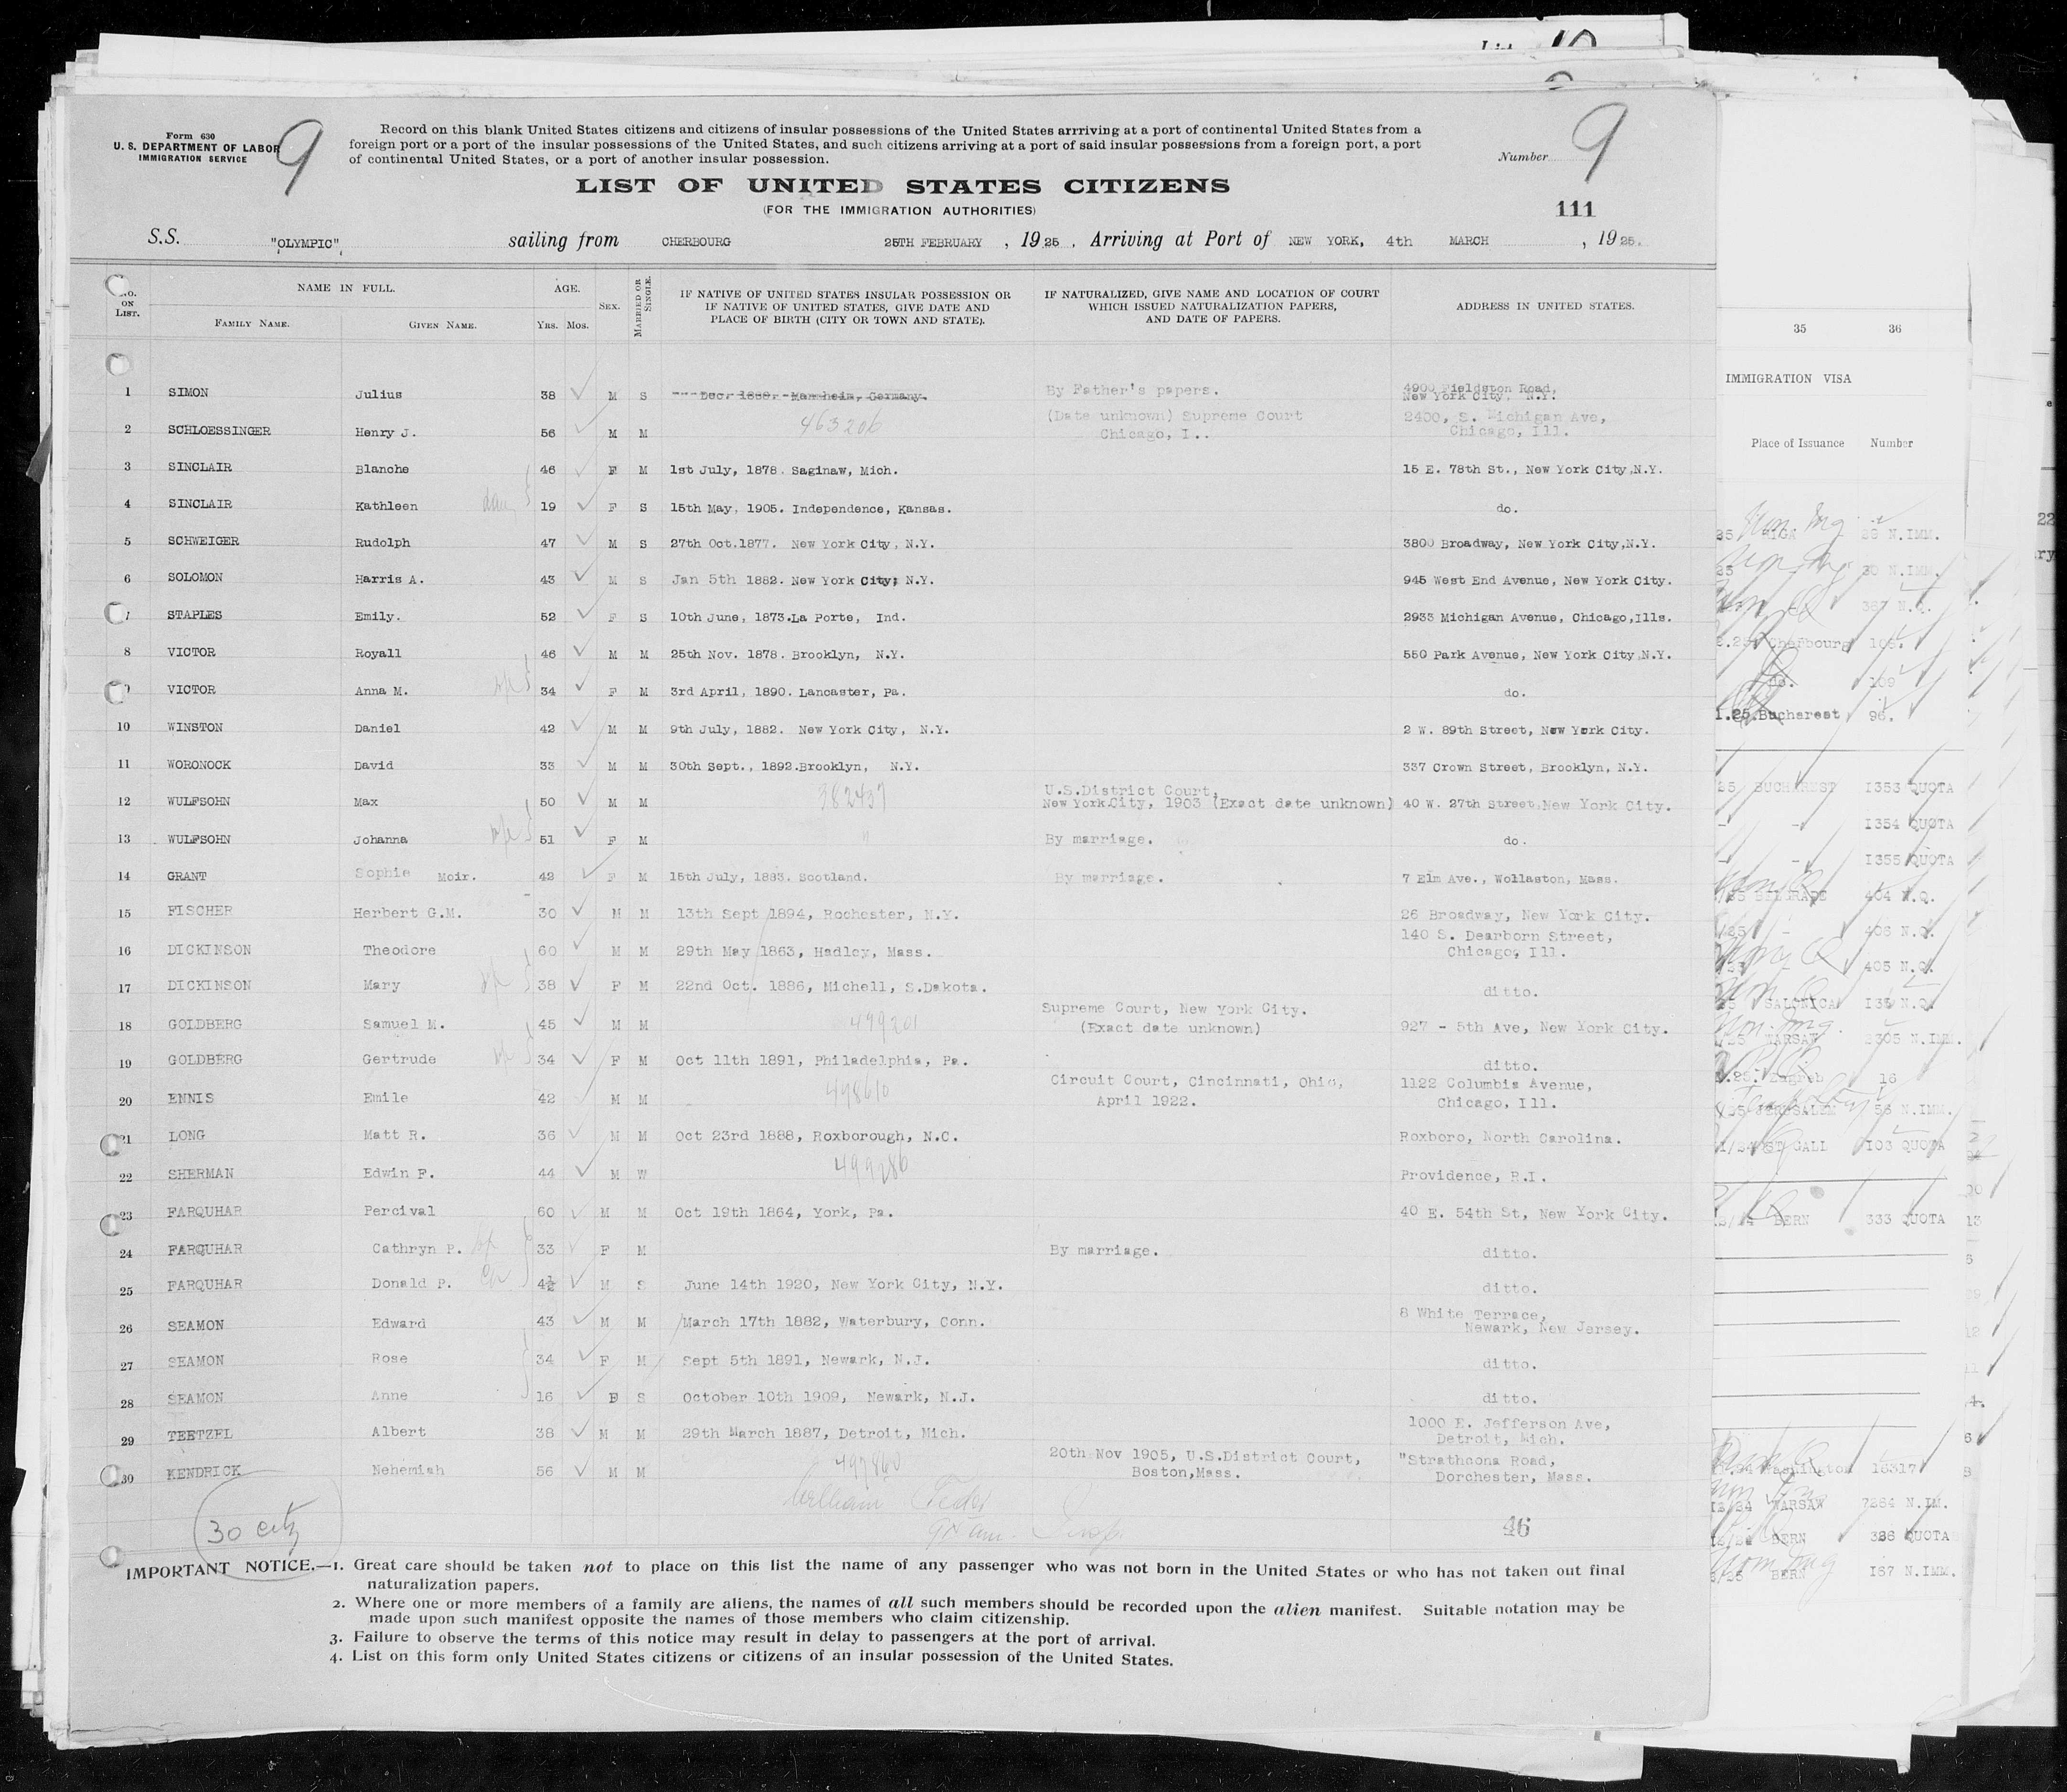 Form 630
U. S. DEPARTMENT OF LABOR
IMMIGRATION SERVICE
9
Record on this blank United States citizens and citizens of insular possessions of the United States arrriving at a port of continental United States from a
foreign port or a port of the insular possessions of the United States, and such citizens arriving at a port of said insular possessions from a foreign port, a port
of continental United States, or a port of another insular possession.
Number 9
LIST OF UNITED STATES CITIZENS
(FOR THE IMMIGRATION AUTHORITIES)
111
S.S. "OLYMPIC", sailing from CHERBOURG 25TH FEBRUARY, 1925, Arriving at Port of NEW YORK, 4th MARCH, 1925.
No. ON LIST. NAME IN FULL. FAMILY NAME. GIVEN NAME. AGE. Yrs. Mos. SEX. MARRIED OR SINGLE. IF NATIVE OF UNITED STATES INSULAR POSSESSION OR IF NATIVE OF UNITED STATES, GIVE DATE AND PLACE OF BIRTH (CITY OR TOWN AND STATE). IF NATURALIZED, GIVE NAME AND LOCATION OF COURT WHICH ISSUED NATURALIZATION PAPERS, AND DATE OF PAPERS. ADDRESS IN UNITED STATES.
1 SIMON Julius 38 M S Dec. 1888. Mannheim, Germany. By Father's papers. 4900 Fieldston Road, New York City, N.Y.
2 SCHLOESSINGER Henry J. 56 M M 463206 (Date unknown) Supreme Court Chicago, I.. 2400, S. Michigan Ave, Chicago, Ill.
3 SINCLAIR Blanche 46 F M 1st July, 1878. Saginaw, Mich. 15 E. 78th St., New York City,N.Y.
4 SINCLAIR Kathleen dau 19 F S 15th May, 1905. Independence, Kansas. do.
5 SCHWEIGER Rudolph 47 M S 27th Oct.1877. New York City, N.Y. 3800 Broadway, New York City,N.Y.
6 SOLOMON Harris A. 43 M S Jan 5th 1882. New York City, N.Y. 945 West End Avenue, New York City.
7 STAPLES Emily. 52 F S 10th June, 1873.La Porte, Ind. 2933 Michigan Avenue, Chicago,Ills.
8 VICTOR Royall 46 M M 25th Nov. 1878. Brooklyn, N.Y. 550 Park Avenue, New York City,N.Y.
9 VICTOR Anna M. wf 34 F M 3rd April, 1890. Lancaster, Pa. do.
10 WINSTON Daniel 42 M M 9th July, 1882. New York City, N.Y. 2 W. 89th Street, New York City.
11 WORONOCK David 33 M M 30th Sept., 1892.Brooklyn, N.Y. 337 Crown Street, Brooklyn, N.Y.
12 WULFSOHN Max 50 M M 382437 U.S.District Court, New York City, 1903 (Exact date unknown) 40 W. 27th Street,New York City.
13 WULFSOHN Johanna wf 51 F M " By marriage. do.
14 GRANT Sophie Moir. 42 F M 15th July, 1883. Scotland. By marriage. 7 Elm Ave., Wollaston, Mass.
15 FISCHER Herbert G.M. 30 M M 13th Sept 1894, Rochester, N.Y. 26 Broadway, New York City.
16 DICKINSON Theodore 60 M M 29th May 1863, Hadley, Mass. 140 S. Dearborn Street, Chicago, Ill.
17 DICKINSON Mary wf 38 F M 22nd Oct. 1886, Michell, S.Dakota. ditto.
18 GOLDBERG Samuel M. 45 M M 499201 Supreme Court, New York City. (Exact date unknown) 927 - 5th Ave, New York City.
19 GOLDBERG Gertrude wf 34 F M Oct 11th 1891, Philadelphia, Pa. ditto.
20 ENNIS Emile 42 M M 498610 Circuit Court, Cincinnati, Ohio, April 1922. 1122 Columbia Avenue, Chicago, Ill.
21 LONG Matt R. 36 M M Oct 23rd 1888, Roxborough, N.C. Roxboro, North Carolina.
22 SHERMAN Edwin F. 44 M W 499286 Providence, R.I.
23 FARQUHAR Percival 60 M M Oct 19th 1864, York, Pa. 40 E. 54th St, New York City.
24 FARQUHAR Cathryn P. wf 33 F M By marriage. ditto.
25 FARQUHAR Donald P. 4½ M S June 14th 1920, New York City, N.Y. ditto.
26 SEAMON Edward 43 M M March 17th 1882, Waterbury, Conn. 8 White Terrace, Newark, New Jersey.
27 SEAMON Rose 34 F M Sept 5th 1891, Newark, N.J. ditto.
28 SEAMON Anne 16 F S October 10th 1909, Newark, N.J. ditto.
29 TEETZEL Albert 38 M M 29th March 1887, Detroit, Mich. 1000 E. Jefferson Ave, Detroit, Mich.
30 KENDRICK Nehemiah 56 M M 497860 20th Nov 1905, U.S.District Court, Boston,Mass. "Strathcona Road, Dorchester, Mass.
William
30 city
46
IMPORTANT NOTICE.—1. Great care should be taken not to place on this list the name of any passenger who was not born in the United States or who has not taken out final
naturalization papers.
2. Where one or more members of a family are aliens, the names of all such members should be recorded upon the alien manifest. Suitable notation may be
made upon such manifest opposite the names of those members who claim citizenship.
3. Failure to observe the terms of this notice may result in delay to passengers at the port of arrival.
4. List on this form only United States citizens or citizens of an insular possession of the United States.
35 36
IMMIGRATION VISA
Place of Issuance Number
RIGA 29 N.IMM.
30 N.IMM.
367 N.Q.
Cherbourg 108.
do. 109
1.25.Bucharest 96.
BUCHAREST 1353 QUOTA
1354 QUOTA
1355 QUOTA
BELGRADE 404 N.Q.
406 N.Q.
405 N.Q.
SALONICA
WARSAW N.IMM.
Zagreb 16
JERUSALEM 56 N.IMM.
ST GALL 103 QUOTA
BERN 333 QUOTA
Washington 16317
WARSAW 7264 N.IM.
BERN 326 QUOTA
BERN 167 N.IMM.